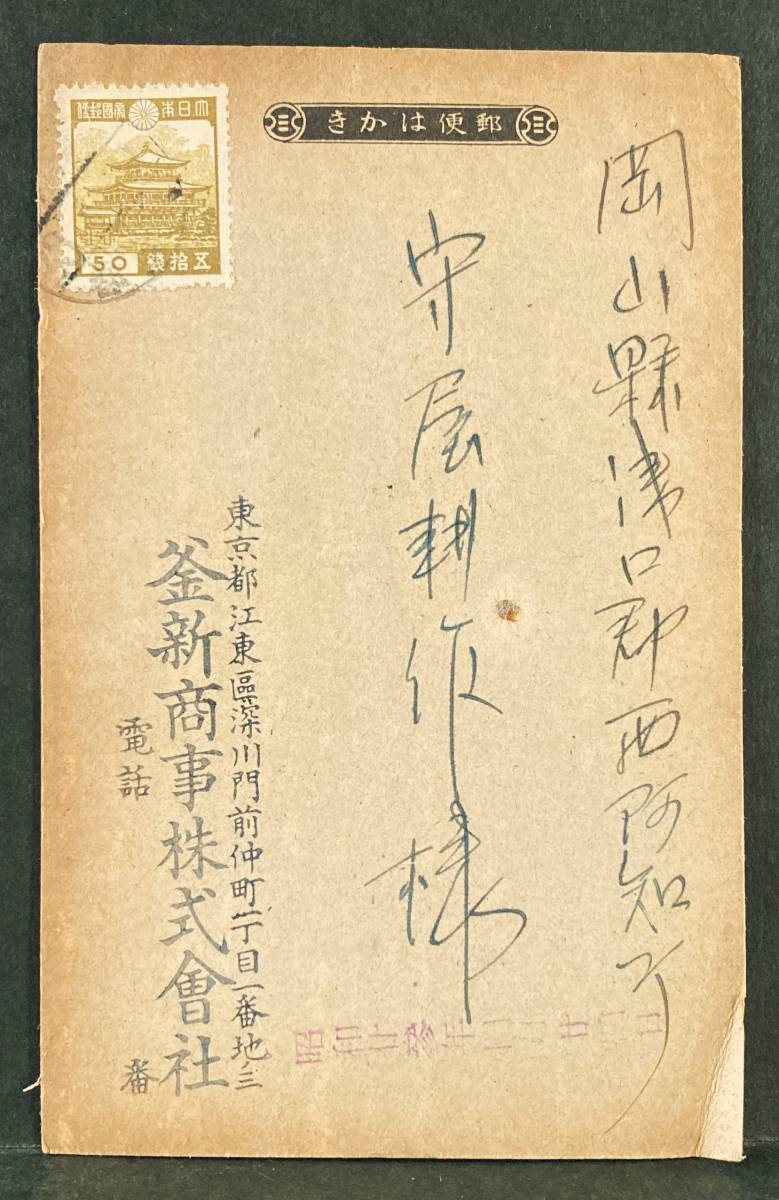 郵便はかき
大日本帝國郵便
50
五拾錢
岡山縣浅口郡西阿知町
守屋耕作様
東京都江東區深川門前仲町一丁目一番地ノ三
釜新商事株式會社
電話 番
昭和廿参年